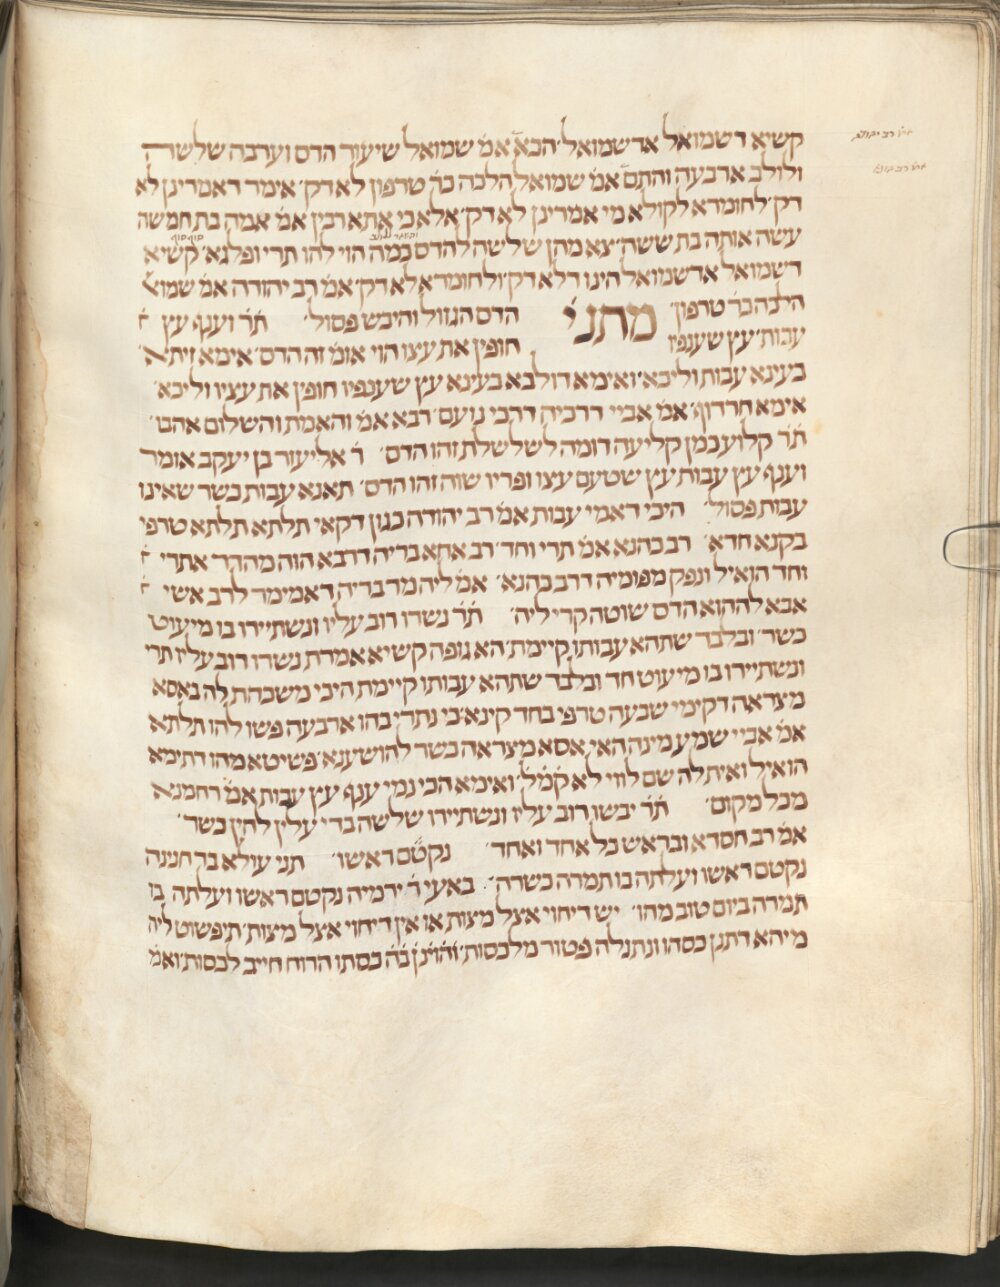 קשיא דשמואל אדשמואל הכא אמ' שמואל שיעור הדס וערבה שלשה
ולולב ארבעה והתם אמ' שמואל הלכה כר' טרפון לא דק' אימר דאמרינן לא
דק' לחומרא לקולא מי אמרינן לא דק' אלא כי אתא רבין אמ' אמה בת חמשה
עשה אותה בת ששה' צא מהן שלשה להדס כמה הוי להו תרי ופלגא' קשיא
דשמואל אדשמואל הינו דלא דק' ולחומרא לא דק' אמ' רב יהודה אמ' שמוא'
הילכה כר' טרפון' מתני' הדס הגזול והיבש פסול' ת"ר וענף עץ
עבות' עץ שענפיו חופין את עצו הוי אומ' זה הדס' אימא זיתא'
בעינא עבות וליכא' ואימא דולבא בעינא עץ שענפיו חופין את עציו וליכא'
אימא הרדוף' אמ' אביי דרכיה דרכי נועם' רבא אמ' והאמת והשלום אהבו'
ת"ר קלוע כמין קליעה דומה לשלשלת זהו הדס' ר' אליעזר בן יעקב אומר
וענף עץ עבות עץ שטעם עצו ופריו שוה זהו הדס' תאנא עבות כשר שאינו
עבות פסול' היכי דאמי עבות אמ' רב יהודה כגון דקאי תלתא תלתא טרפי
בקנא חדא' רב כהנא אמ' תרי וחד' רב אחא בריה דרבא הוה מהדר אתרי
וחד הואיל ונפק מפומיה דרב כהנא' אמ' ליה מר בריה דאמימר לרב אשי
אבא לההוא הדס שוטה קרי ליה' ת"ר נשרו רוב עליו ונשתיירו בו מיעוט
כשר' ובלבד שתהא עבותו קיימת' הא גופה קשיא אמרת נשרו רוב עליו תרי
ונשתיירו בו מיעוט חד ובלבד שתהא עבותו קיימת היכי משכחת לה באסא
מצראה דקימי שבעה טרפי בחד קינא' כי נתרי בהו ארבעה פשו להו תלתא
אמ' אביי שמע מינה האי אסא מצראה כשר להושענא' פשיטא מהו דתימא
הואיל ואית לה שם לווי לא קמ"ל' ואימא הכי נמי ענף עץ עבות אמ' רחמנא
מכל מקום' ת"ר יבשו רוב עליו ונשתיירו שלשה בדי עלין לחין כשר'
אמ' רב חסדא ובראש כל אחד ואחד' נקטם ראשו' תני עולא בר חנינה
נקטם ראשו ועלתה בו תמרה כשרה' באעי ר' ירמיה נקטם ראשו ועלתה בו
תמרה ביום טוב מהו' יש דיחוי אצל מצות או אין דיחוי אצל מצות' תיפשוט ליה
מיהא דתנן כסהו ונתגלה פטור מלכסות' והוינן בה כסתו הרוח חייב לכסות' ואמ'